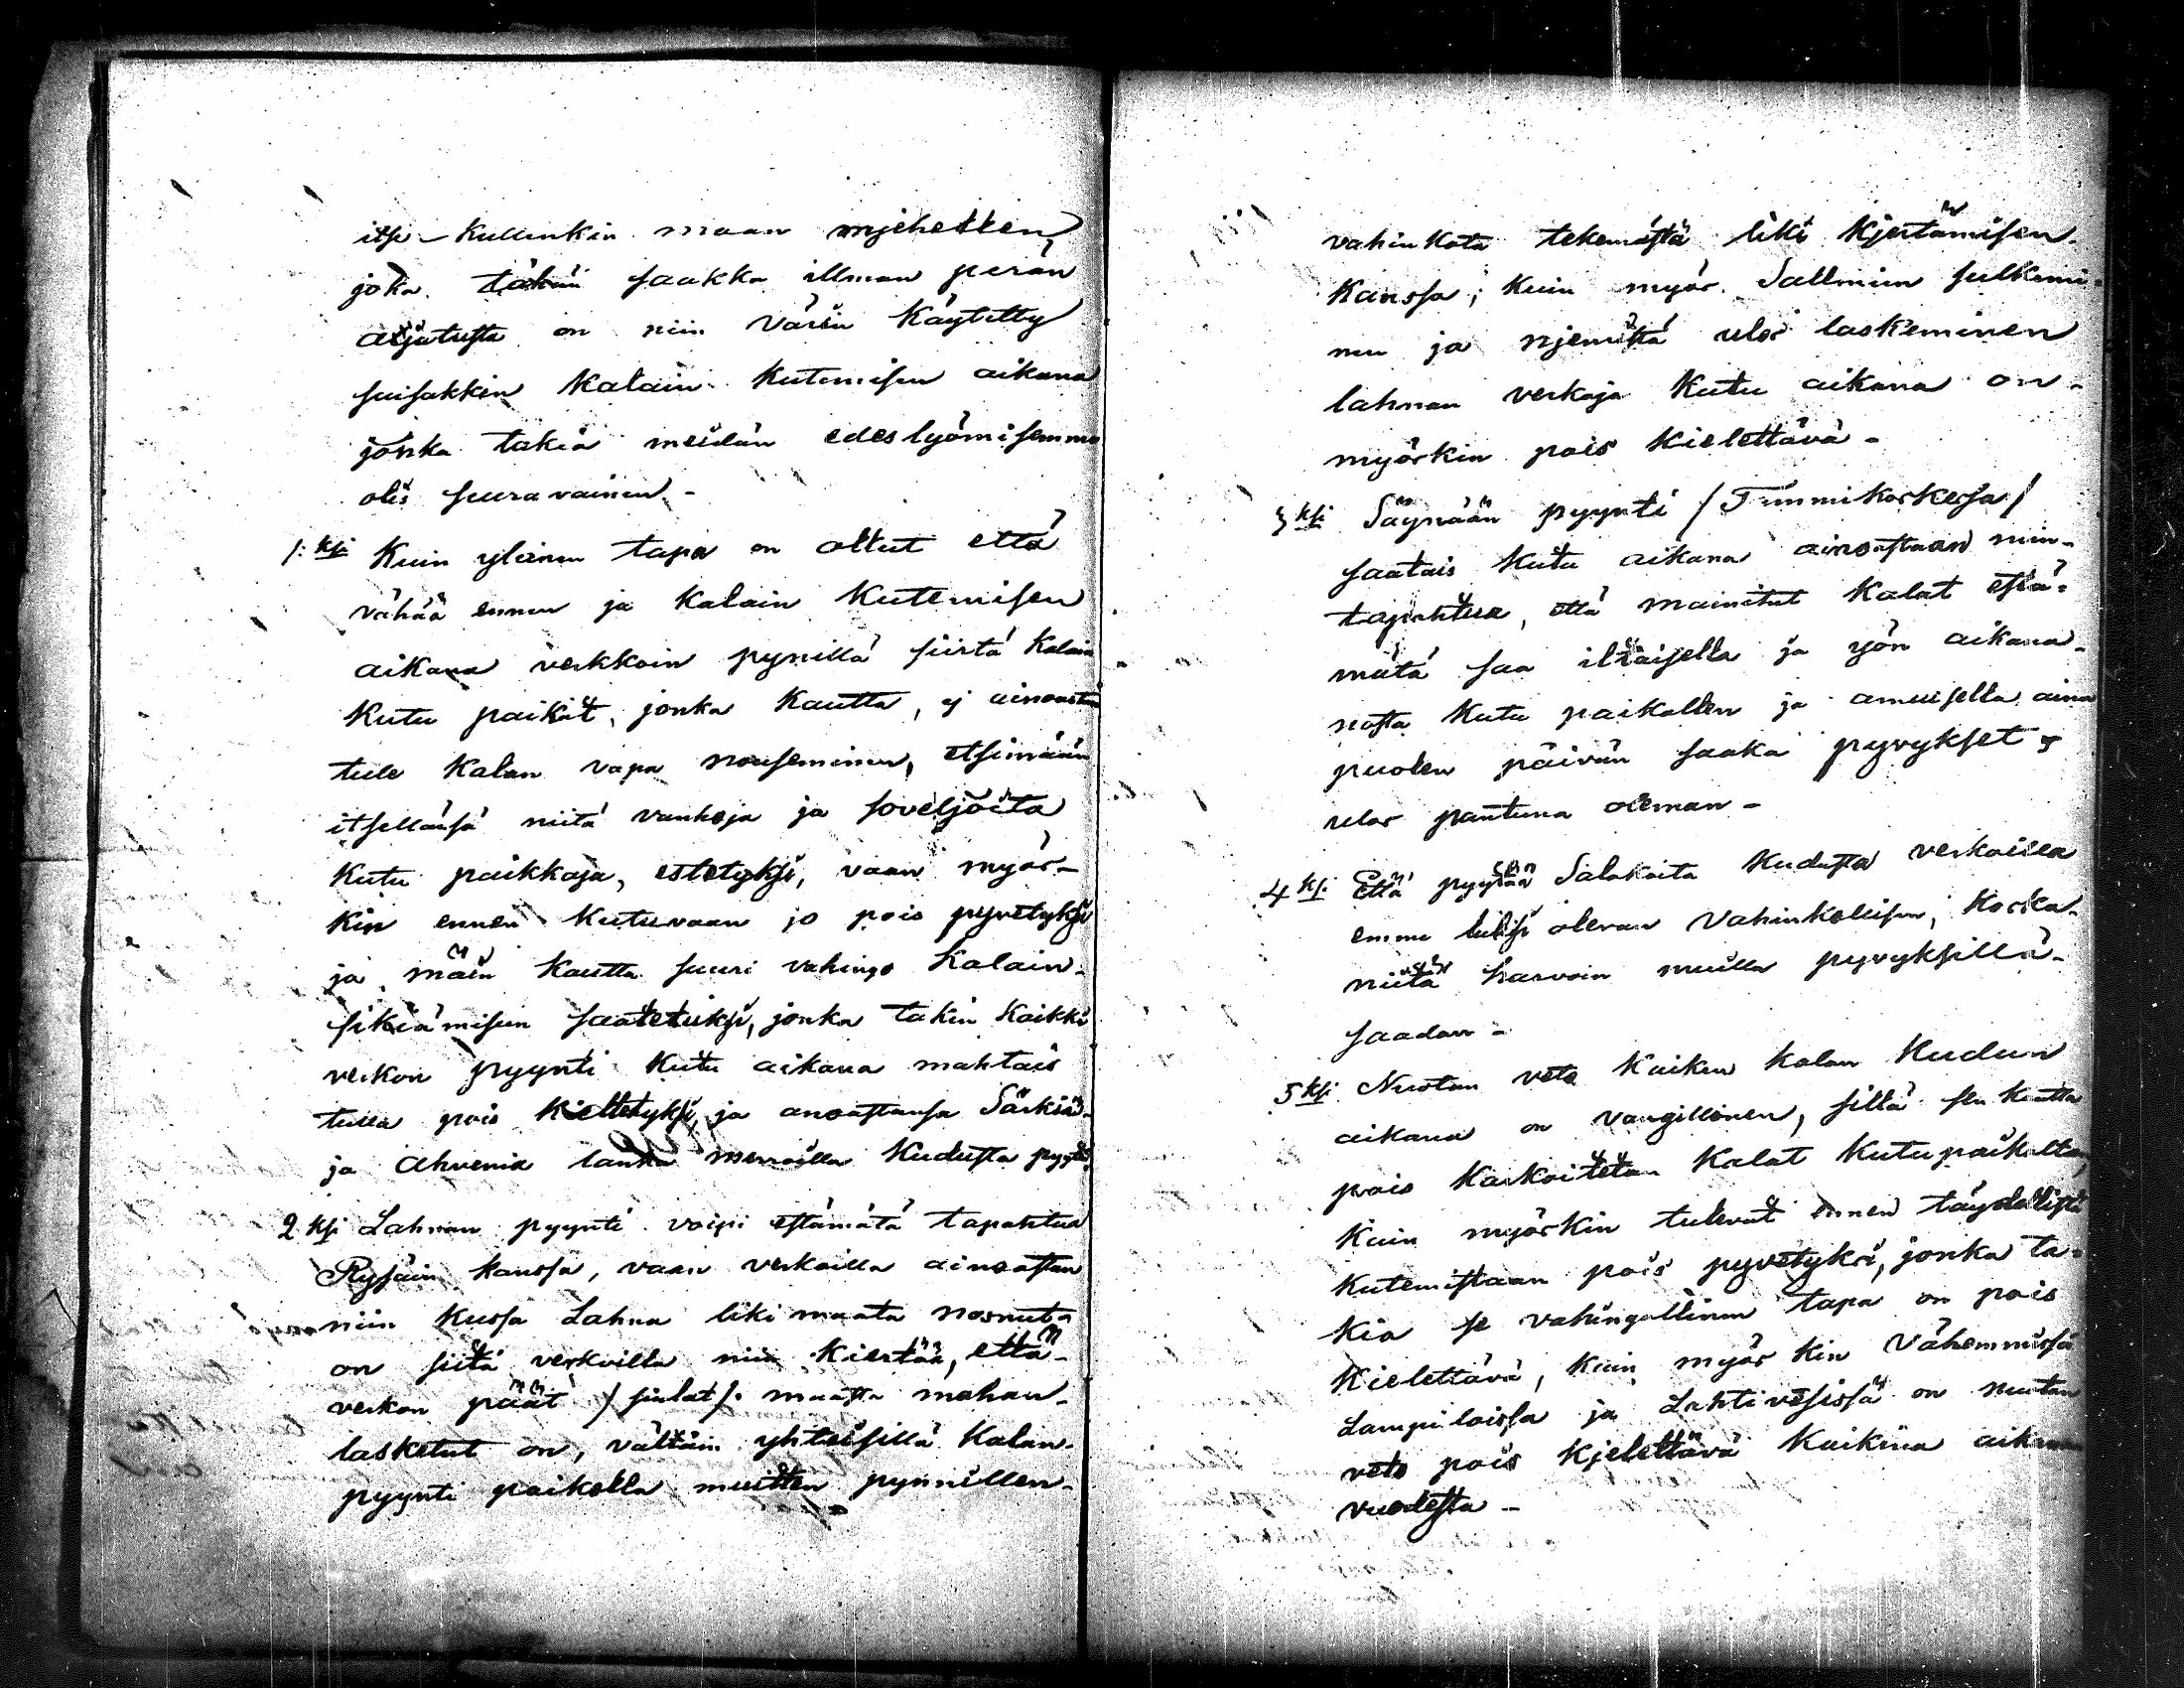 itse-kullenkin maan mjehellen,
joka tähän saakka illman perän
aijatusta on niin väärin käytetty
suisakkin kalain kutemisen aikana
jonka takia meidän edeslyömisemme
olis seuravainen -
1:ksi Kuin yleinen tapa on ollut että
vähää ennen ja kalain kutemisen
aikana verkkoin pynillä siirtä kalain
kutu paikat, jonka kautta, ej ainoastan
tule kalan vapa nouseminen, etsimään
itsellänsä niitä vanhoja ja soveljoita
kutu paikkoja, estetyksi, vaan myös-
kin ennen kutuvaan jo pois pyvetyksi
ja näin kautta suuri vahingo kalain-
sikiämiseen saatetuksi, jonka takia kaikki
verkon pyynti kutu aikana mahtais
tulla pois kielletyksi, ja anoastansa Särkiä-
ja ahvenia lanka merroilla kudusta pyytä
2 ksi Lahnan pyynti voipi estämätä tapahtua
Rysäin kanssa, vaan verkoilla ainoastan
niin kussa Lahna liki maata nosnut-
on siitä verkoilla niin kiertää, että-
verkon päät / siulat / maasta mahan-
lasketut on, vältäin yhteisillä kalan-
pyynti paikolla muitten pynnillen-
vahinkota tekemästä liki kjertämisen-
kanssa; kuin myös Sallmien sulkemi-
nen ja njemistä ulos laskeminen
lahnan verkoja kutu aikana on-
myöskin pois kielettävä -
3 ksi Säynään pyynti / Timmikoskessa /
saatais kutu aikana ainoastaan niin-
tapahtua, että mainitut kalat estä-
mätä saa iltaisella ja yön aikana-
nosta kutu paikallen ja amuisella aina
puolen päivän saaka pyvykset
ulos pantuna oleman -
4 ksi Että pyytää Salakoita kudusta verkoilla
emme luulisi olevan vahinkolisen, koska-
niitä harvoin muilla pyvyksillä-
saadan -
5 ksi Nuotan veto kaiken kalan kudun
aikana on vangillinen, sillä sen kautta
pois karkoitetan kalat kutupaikalta,
kuin myöskin tulevat ennen täydellistä
kutemistaan pois pyvetyksi, jonka ta-
kia se vahingollinen tapa on pois
kielettävä, kuin myös kin vähemmissä
Lampiloissa ja Lahtivesissä on nuotan
veto pois kjelettävä kaikina aikana
vuodesta -